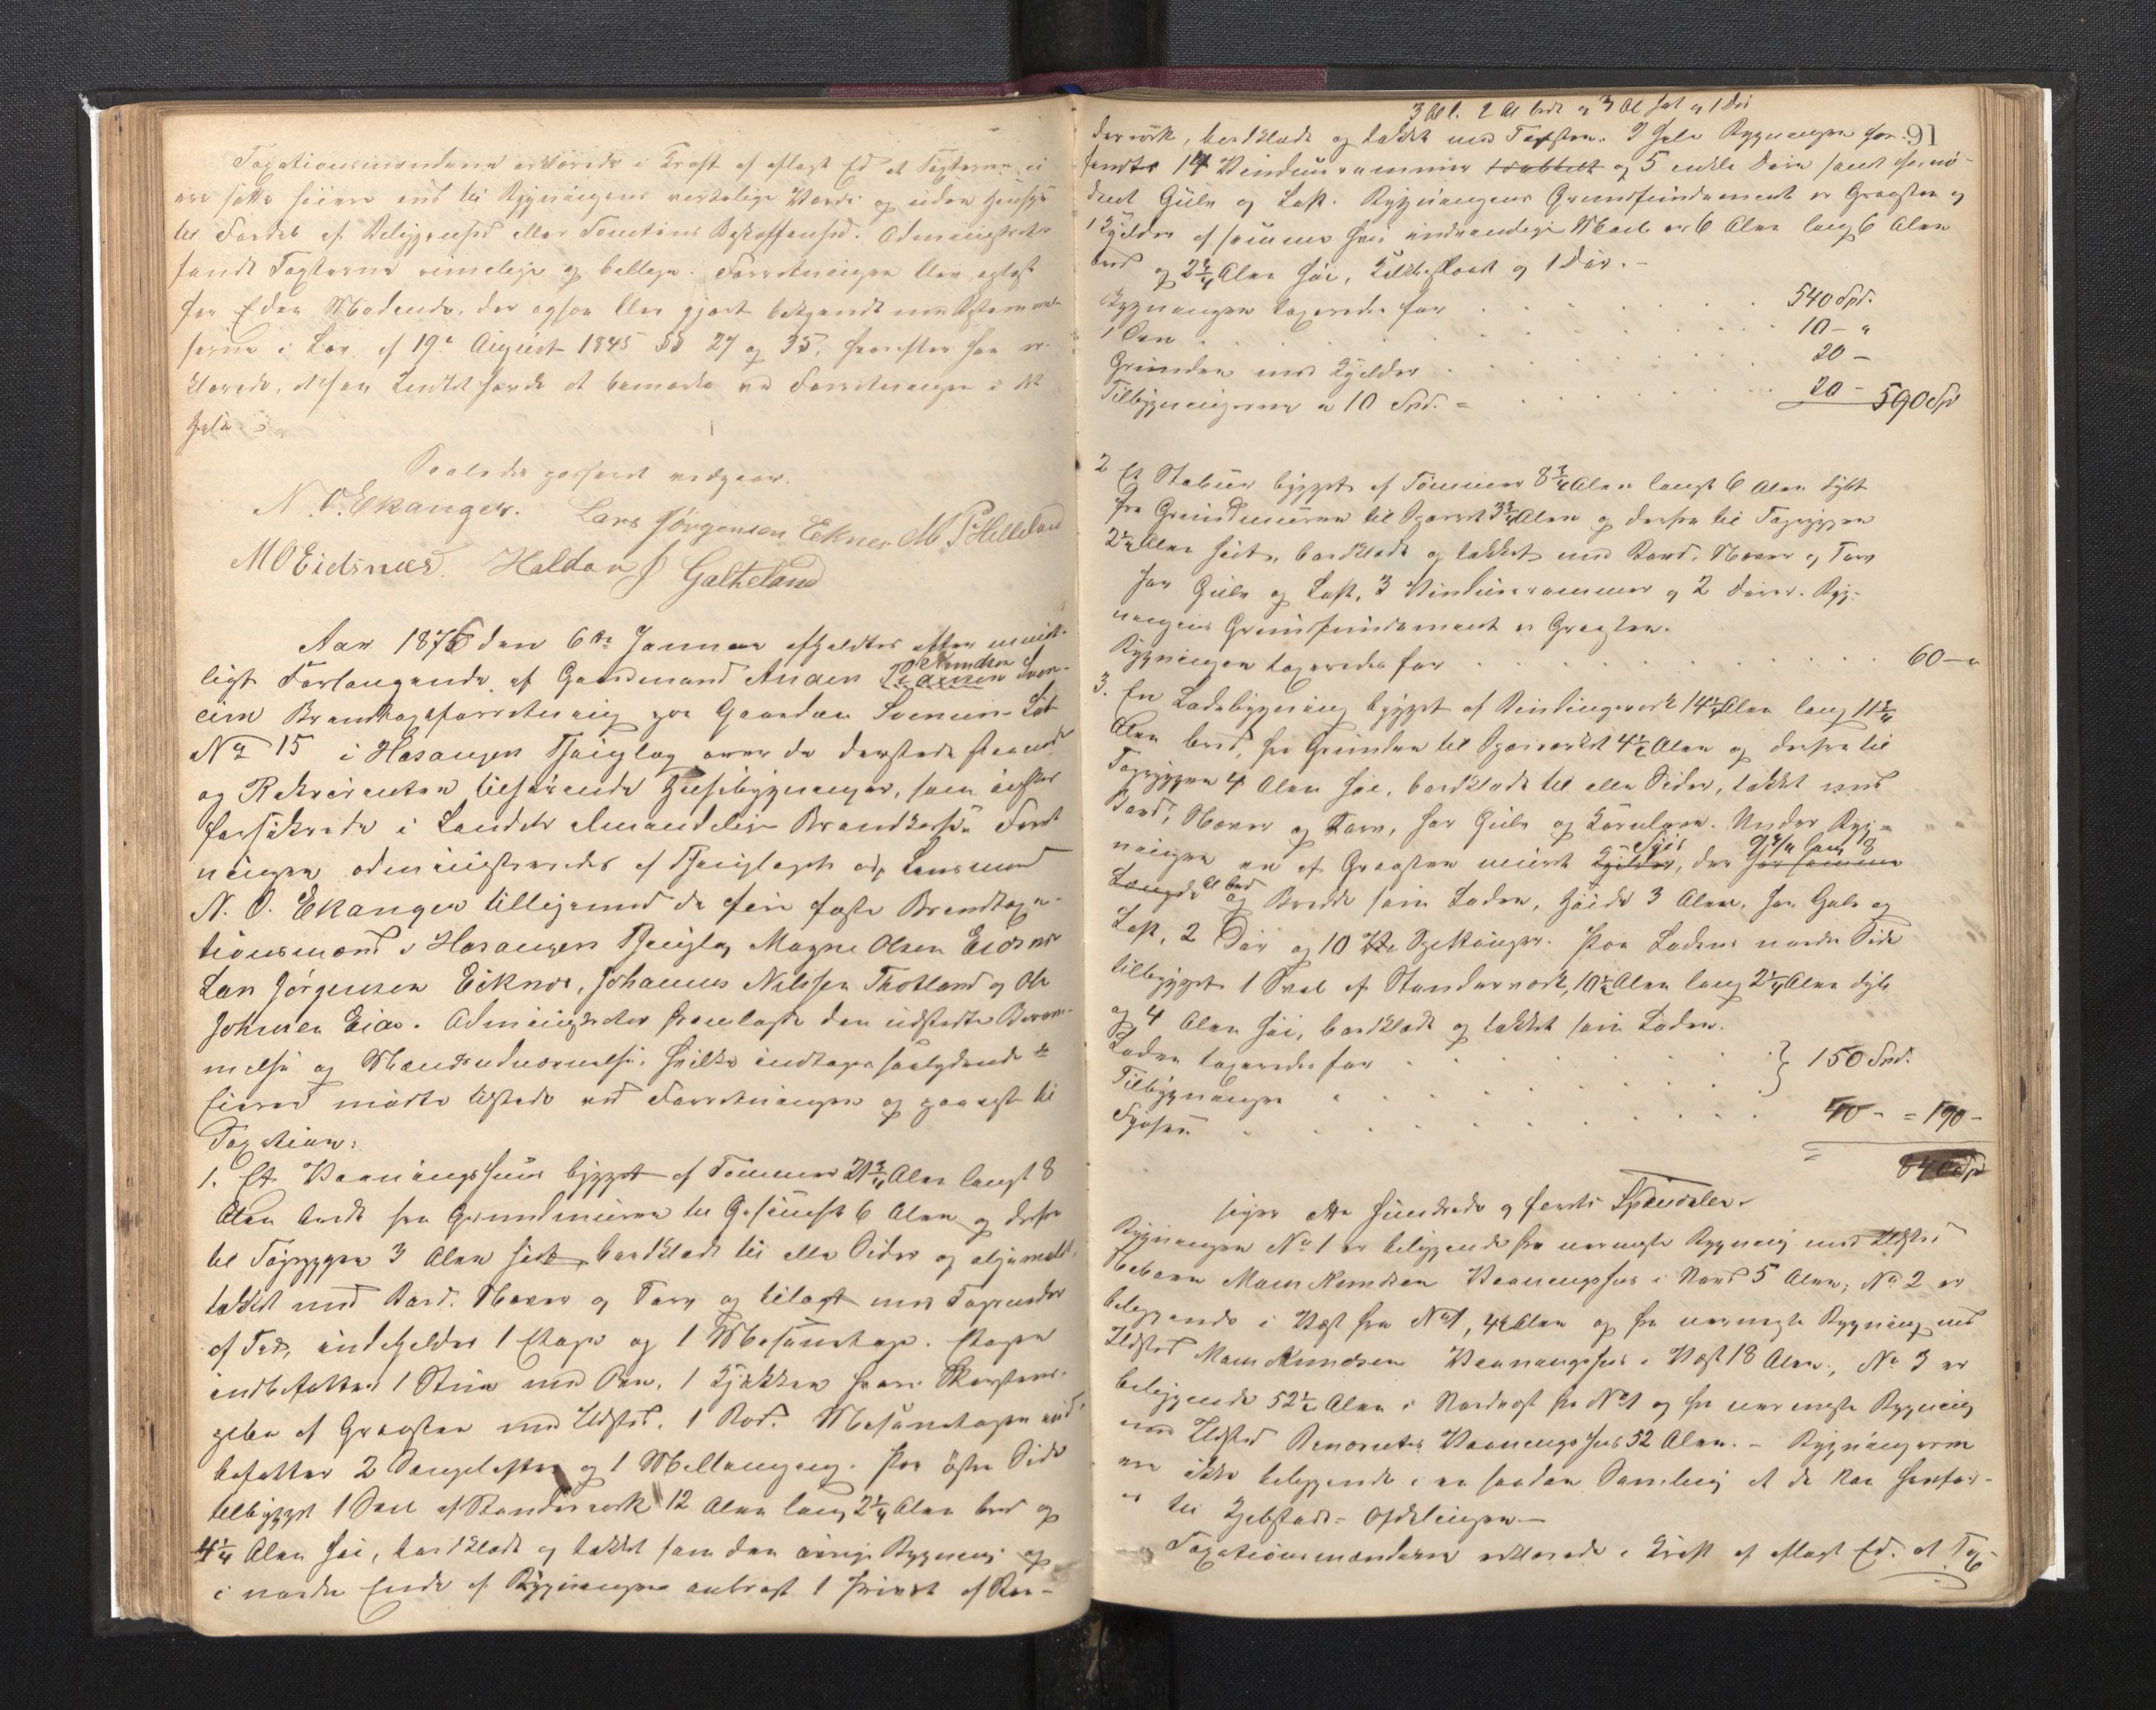 Taxationsmændene erklærede i Kraft af aflagt Ed at Taxterne ei
ere satte høiere end til Bygningens virkelige Værdi og uden Hensyn
til Fordel af Beliggenhed eller Tomtens Beskaffenhed. Administrator
fandt Taxterne rimelige og billige. Forretningen blev oplæst
for Eden Modende, der ogsaa blev gjort bekjendt med Bestemmel-
serne i Lov af 19de August 1845 §§ 27 og 35, hvorefter han er-
klærede, at han Intet havde at bemærke ved Forretningen i det
Hele.
Saaledes passeret vedgaar.
N. O. Ekanger. Lars Jørgensen Eknes M P Helleland
M O Eidsnæs. Haldor J Galteland
Aar 1876 den 6te Januar afholdtes efter mundt-
ligt Forlangende af Gaardmand Anders Knudsen
Brandtaxtforretning paa Gaarden Løb
No 15 i Hosanger Thinglag over de dersteds staaende
og Rekvirenten tilhørende Huusbygninger, som ønskes
forsikrede i Landets almindelige Brandkasse. Forret-
ningen administreredes af Thinglagets Lensmand
N. O. Ekanger tilligemed de fire faste Brandtaxa-
tionsmænd i Hosanger Thinglag Magne Olsen Eidsnæs
Lars Jørgensen Eiknes, Johannes Nilssen Thotland og Ole
Johnsen Eide. Administrator fremlagde den udstedte Beram-
melse og Mændsudnævnelse, hvilke indtages saalydende
Eieren mødte tilstede ved Forretningen og paaviste til
Taxation:
1. Et Vaaningshuus bygget af Tømmer 21 3/4 Alen langt 8
Alen bredt fra Grundmuren til Gesimsen 6 Alen og derfra
til Tagryggen 3 Alen høit, bordklædt til alle Sider og oljemalt,
tækket med Bord, Næver og Torv og tilagt med Tagrender
af Træ, indeholder 1 Etage og 1 Mesanetage. Etagen
indbefatter 1 Stue med Ovn, 1 Kjøkken hvori Skorstens-
pibe af Graasten med Ildsted, 1 Bod. Mesanetagen ind-
befatter 2 og 1 Mellemgang. Paa østre Side
tilbygget 1 Sval af Stænderværk 12 Alen lang 2 1/4 Alen bred og
4 1/4 Alen høi, bordklædt og tækket som den øvrige Bygning og
i nordre Ende af Bygningen anbragt 1 af Bin-
3 Al l. 2 Al bredt og 3 Al høi og 1 Dør
derværk, bordklædt og tækket med Tagsten. I hele Bygningen for- 91
findes 14 Vinduesrammer og 5 enkle Døre samt fornø-
dent Gulv og Loft. Bygningens Grundfundament er Graasten og
1 Kjelder af samme hvis indvendige Maal er 6 Alen lang 6 Alen
bred og 2 3/4 Alen høi, og 1 Dør. -
Bygningen taxeredes for 540 Spd.
1 Ovn 10 - "
Grunden med Kjelder 20 -
Tilbygningerne a 10 Spd. = 20 - 590 Spd
2 Et Stabuur bygget af Tømmer 8 3/4 Alen langt 6 Alen dybt
fra Grundmuren til 3 3/4 Alen og derfra til Tagryggen
2 1/4 Alen høit, bordklædt og tækket med Bord, Næver og Torv
har Gulv og Loft, 3 Vinduesrammer og 2 Døre. Byg-
ningens Grundfundament er Graasten.
Bygningen taxeredes for 60 - "
3. En Ladebygning bygget af Bindingsværk 14 1/4 Alen lang 11 3/4
Alen bred, fra Grunden til 4 1/2 Alen og derfra til
Tagryggen 4 Alen høi, bordklædt til alle Sider, tækket med
Bord, Næver og Torv, har Gulv og Kornlaave. Under Byg-
ningen er af Graasten muret Kjelder, der har samme
Fjøs 9 3/4 lang 8
Længde og Bredde som Laden, Høide 3 Alen, har Gulv og
Al bred
Loft, 2 Dør og 10 . Paa Ladens nordre Side
tilbygget 1 Sval af Stænderværk, 10 1/2 Alen lang 2 1/4 Alen dyb
og 4 Alen høi, bordklædt og tækket som Laden.
Laden taxeredes for 150 Spd.
Tilbygningen "
Fjøsen 40 - = 190 -
840 Spd
siger otte hundrede og førti Speciedaler.
Bygningen No 1 er beliggende fra nærmeste Bygning med Ildsted
Mons Knudsen Vaaningshus i Nord 5 Alen; No 2 er
beliggende i Vest fra No 1, 42 Alen og fra nærmeste Bygning med
Ildsted Mons Knudsen Vaaningshus i Vest 18 Alen; No 3 er
beliggende 52 1/2 Alen i Nordvest fra No 1 og fra nærmeste Bygning
med Ildsted Vaaningshus 52 Alen. - Bygningerne
ere ikke beliggende i en saadan Samling at de kan henfør-
es til Kjøbstads-Afdelingen. -
Taxationsmændene erklærede i Kraft af aflagt Ed, at Tax-